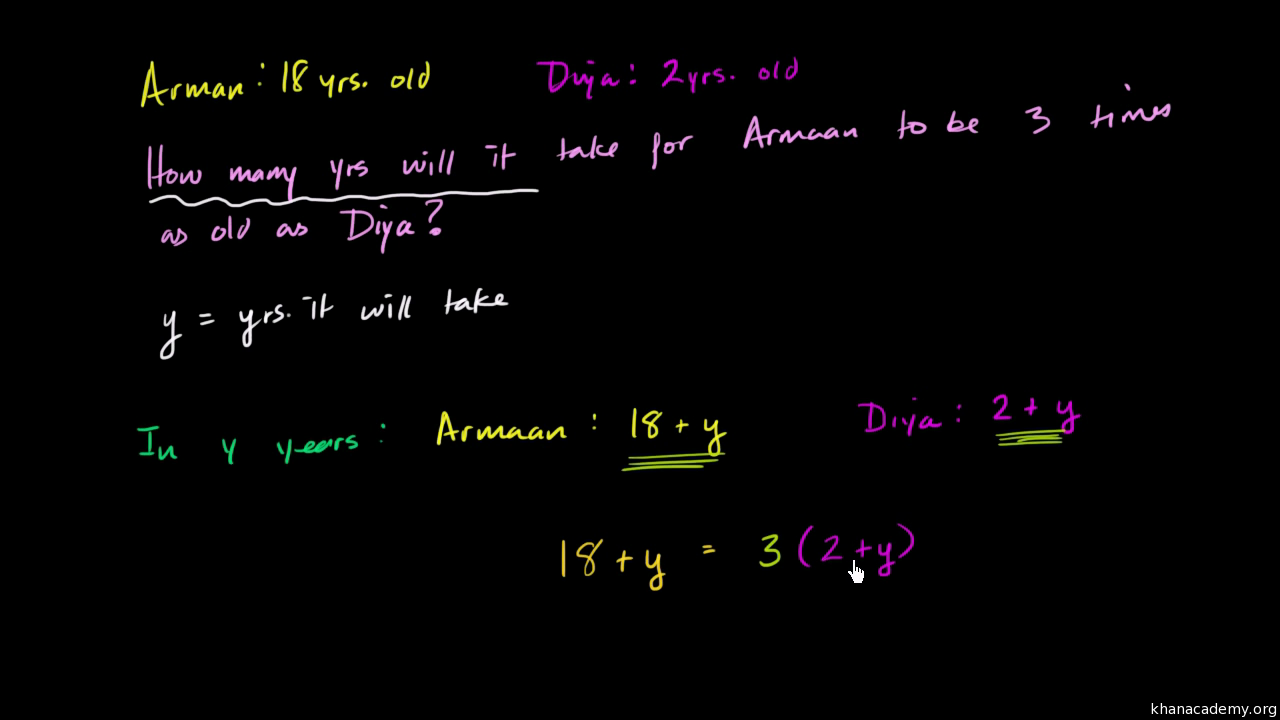 Arman: 18 yrs. old Diya: 2yrs. old
How many yrs will it take for Armaan to be 3 times
as old as Diya?
y = yrs. it will take
In y years: Armaan: 18 + y Diya: 2 + y
18 + y = 3 (2+y)
khanacademy.org